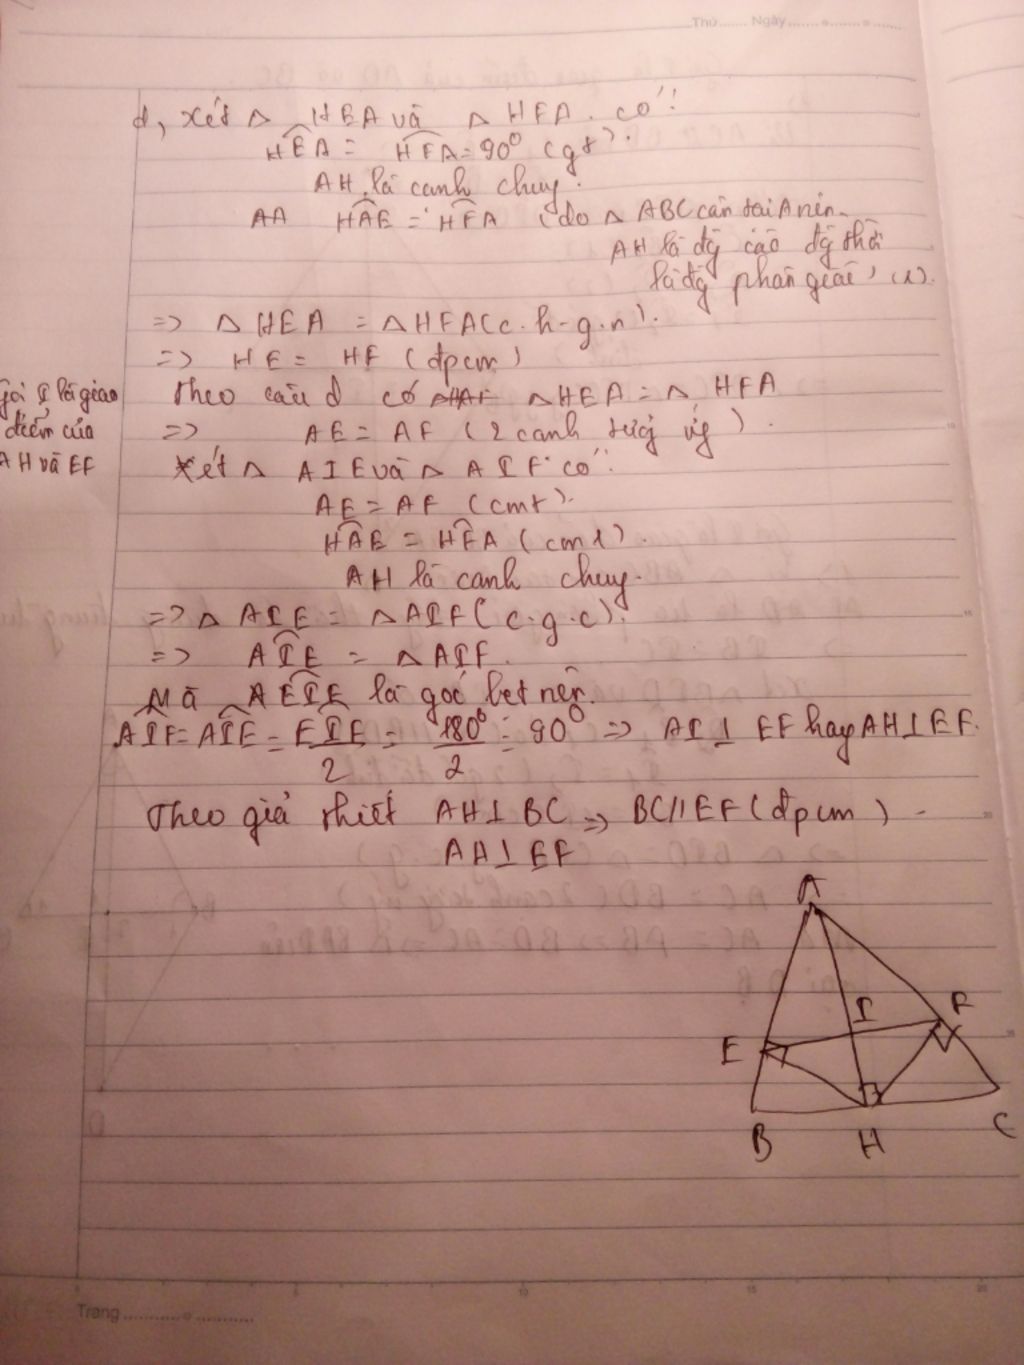 Thứ....... Ngày.......
d, xét △ HEA và △ HFA. có:
HÊA = HF̂A = 90⁰ (gt).
AH là cạnh chung.
HÂE = HF̂A (do △ ABC cân tại A nên
AH là đg cao đg thời
là đg phân giác) (1).
=> △ HEA = △ HFA (c.h-g.n).
=> HE = HF (đpcm)
Gọi I là giao
điểm của
AH và EF
Theo câu d có △ HEA = △ HFA
=> AE = AF (2 cạnh tương ứng).
Xét △ AIE và △ AIF có:
AE = AF (cmt).
HÂE = HF̂A (cmt).
AH là cạnh chung.
=> △ AIE = △ AIF (c.g.c).
=> AÎE = △ AIF.
Mà AEÎE là góc bẹt nên.
AÎF = AÎE = EÎE/2 = 180⁰/2 = 90⁰ => AI ⊥ EF hay AH ⊥ EF.
Theo giả thiết AH ⊥ BC => BC // EF (đpcm)
AH ⊥ EF
A
I
F
E
B
H
C
Trang